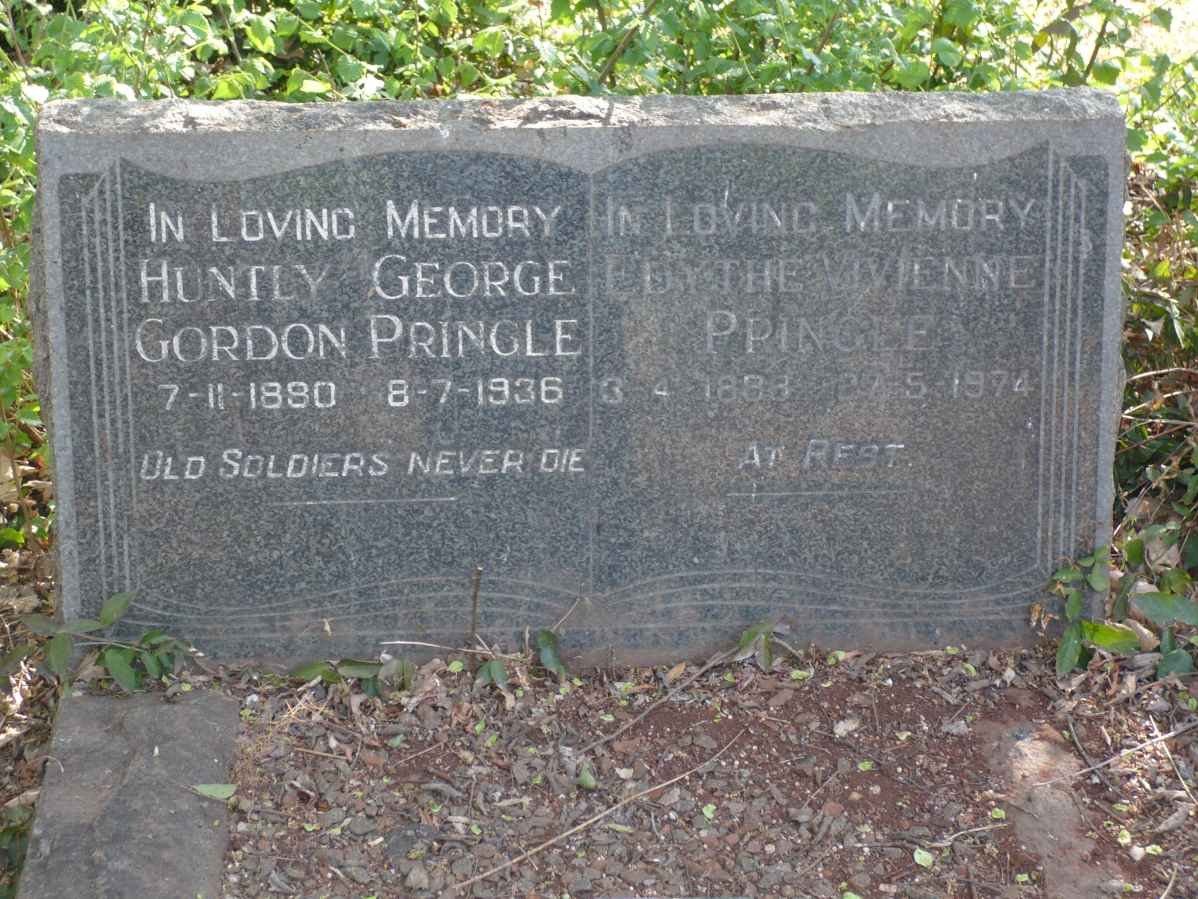 IN LOVING MEMORY
HUNTLY GEORGE
GORDON PRINGLE
7-11-1890 8-7-1936
OLD SOLDIERS NEVER DIE
IN LOVING MEMORY
EDYTHE VIVIENNE
PRINGLE
-5-1974
AT REST